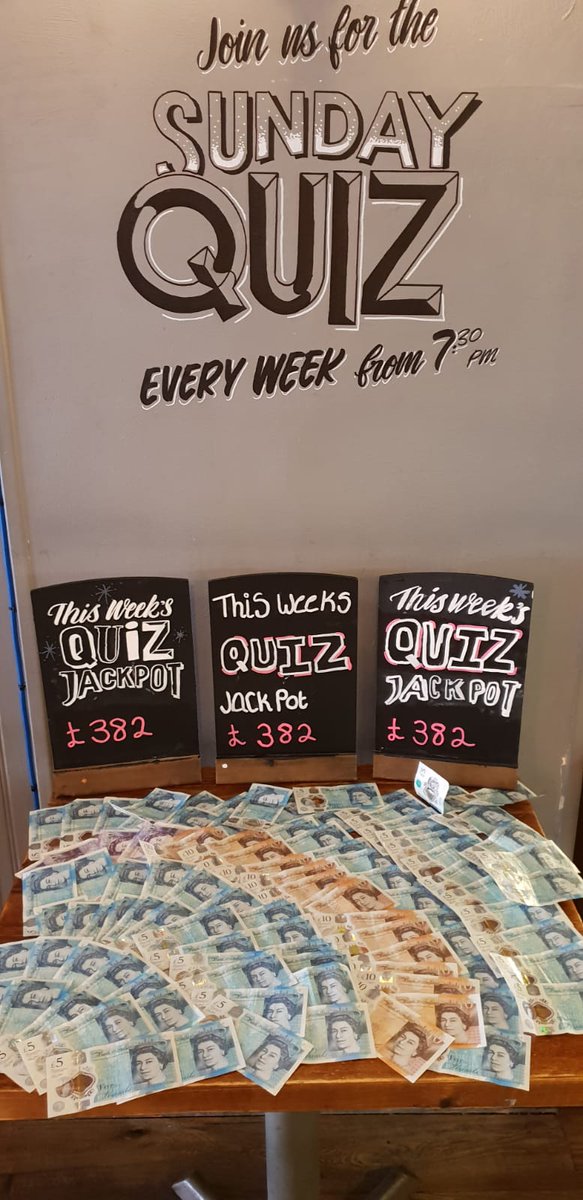 Join us for the
SUNDAY
QUIZ
EVERY WEEK from 7:30 PM
This Week's
QUiZ
JACKPOT
£382
This Weeks
QUIZ
JackPot
£ 382
This week's
QUIZ
JACKPOT
£382
£5
£5
£10
£10